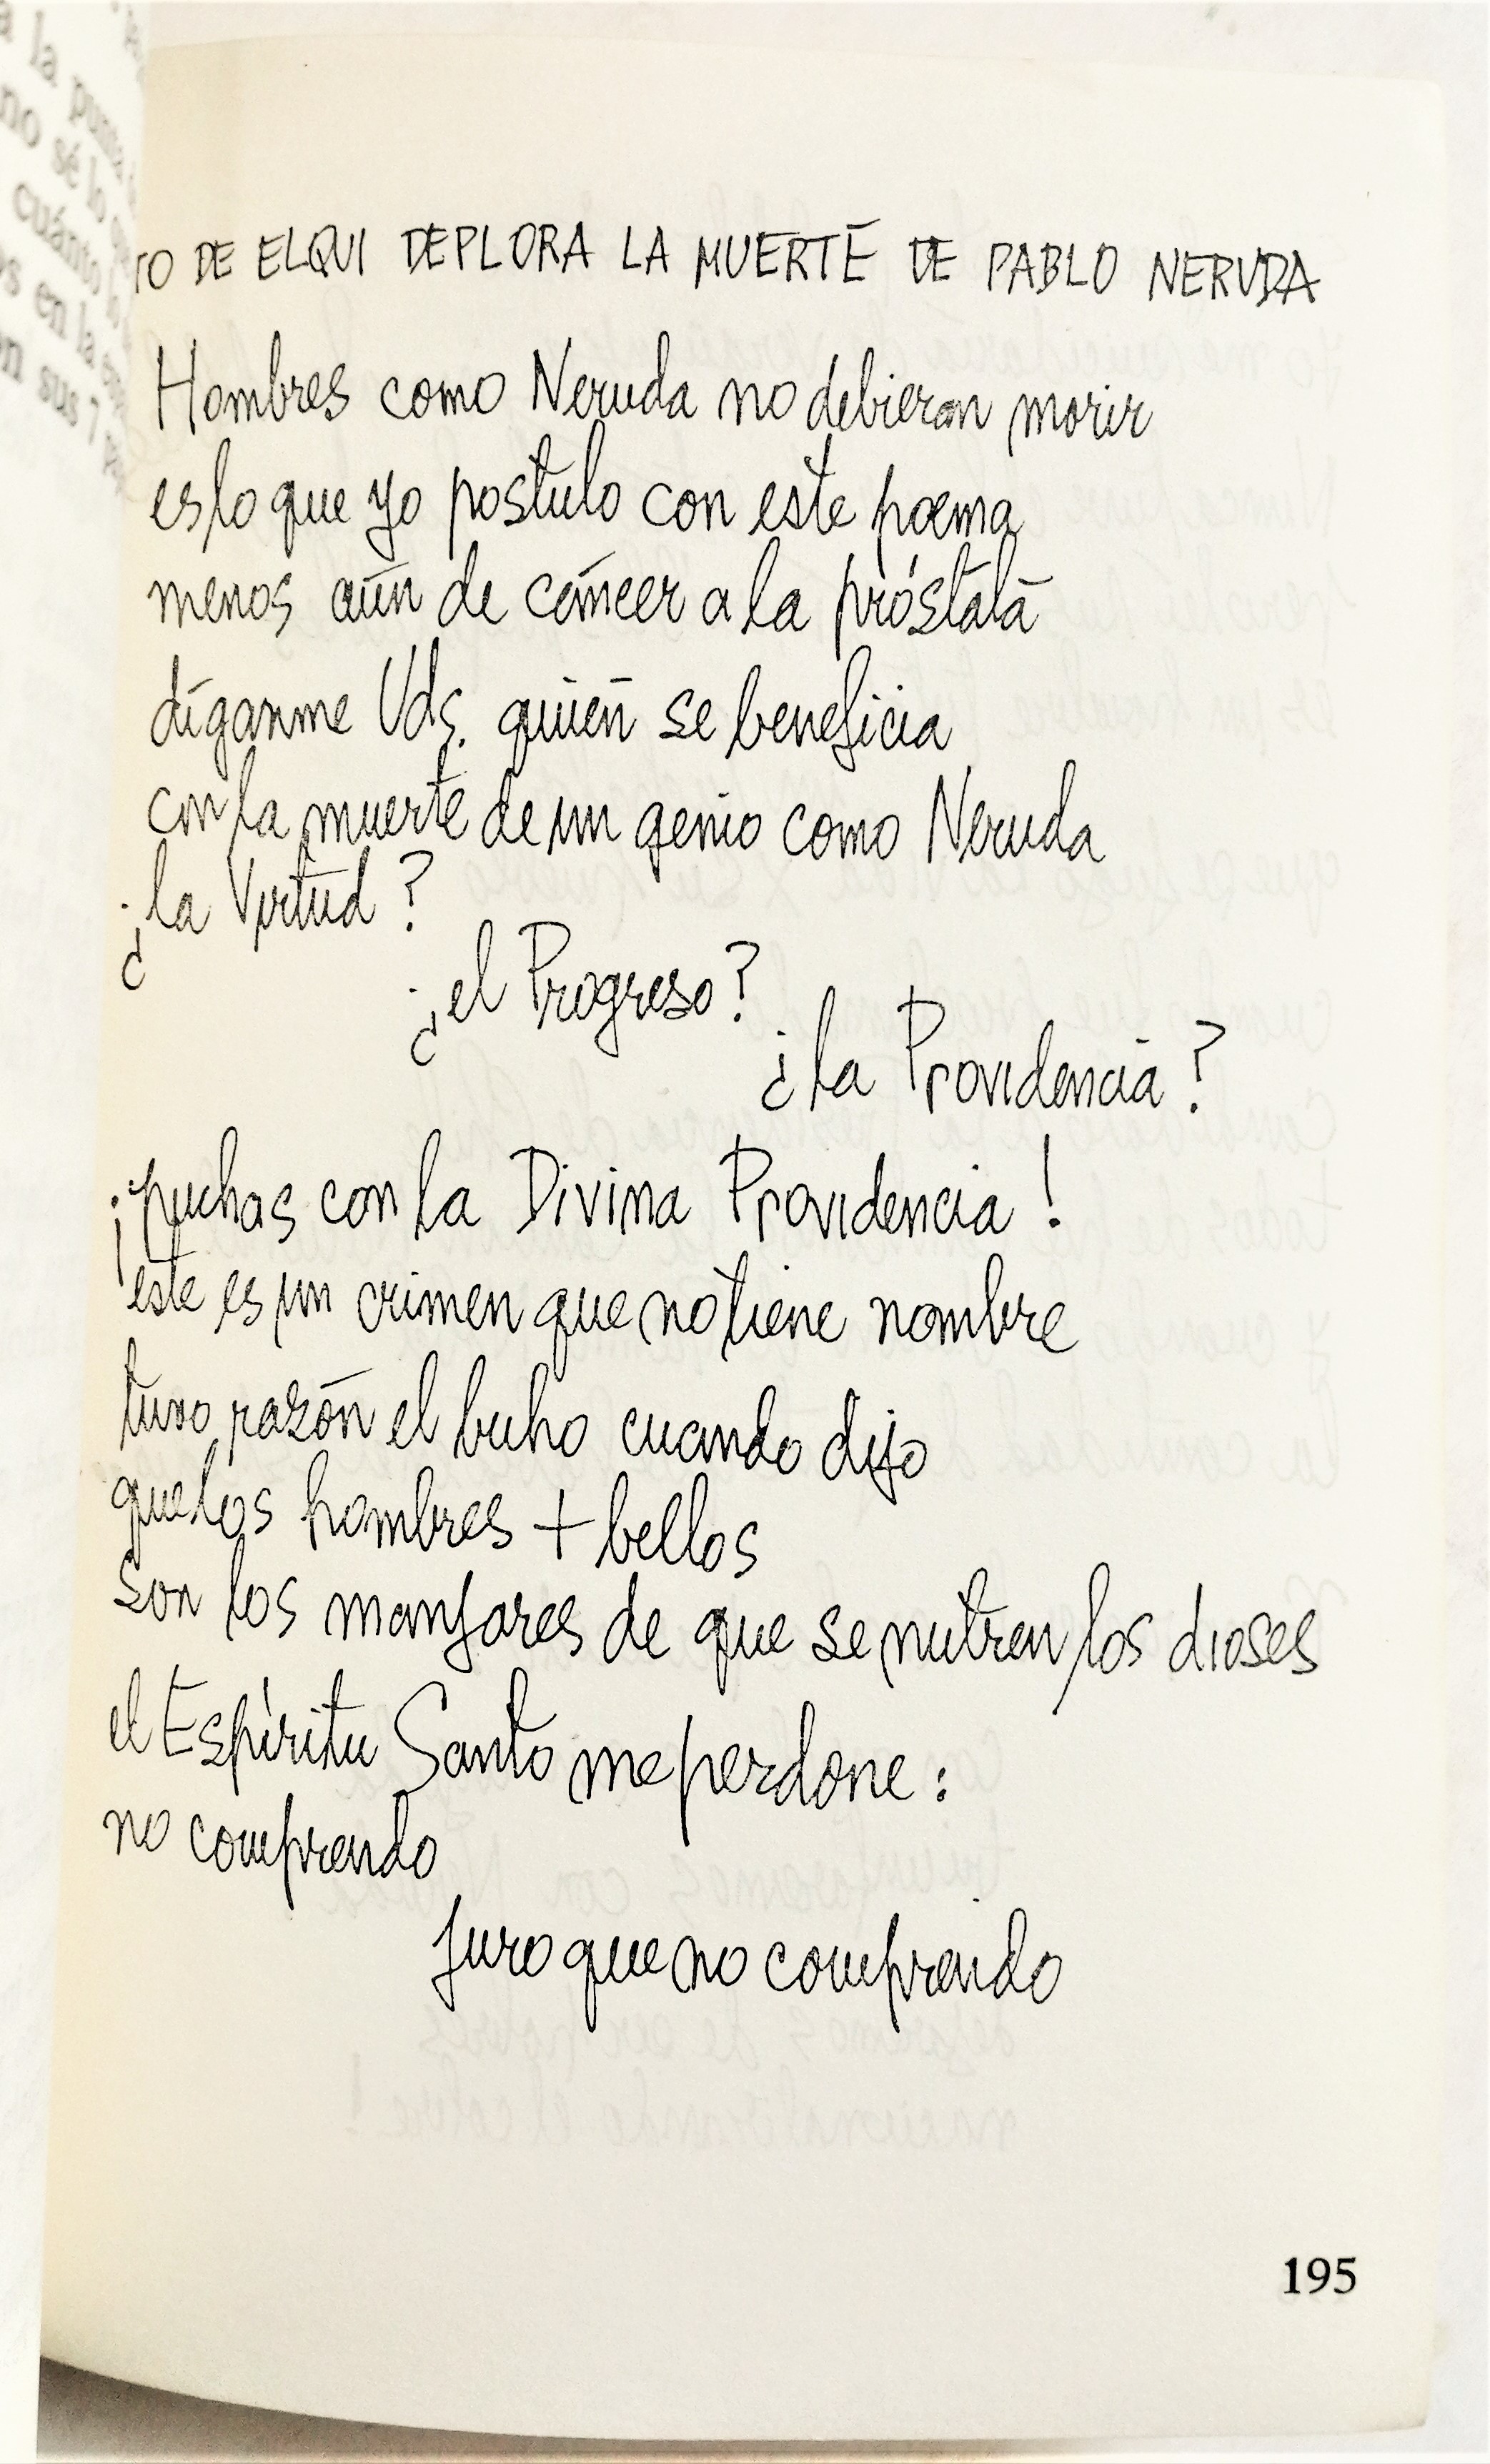 a la punta
no sé lo
cuánto lo
en la
n sus 7
TO DE ELQUI DEPLORA LA MUERTE DE PABLO NERUDA
Hombres como Neruda no debieran morir
es lo que yo postulo con este poema
menos aún de cáncer a la próstata
díganme Uds. quién se beneficia
con la muerte de un genio como Neruda
¿la Virtud?
¿el Progreso?
¿la Providencia?
¡puchas con la Divina Providencia!
este es un crimen que no tiene nombre
tuvo razón el buho cuando dijo
que los hombres + bellos
son los manjares de que se nutren los dioses
el Espíritu Santo me perdone:
no comprendo
juro que no comprendo
195